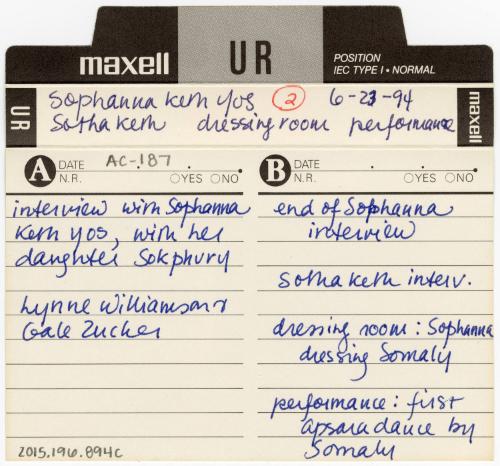 maxell
UR
POSITION
IEC TYPE I • NORMAL
UR
maxell
Sophanna Keth Yos ② 6-23-94
Sotha Keth dressing room performance
A DATE AC-187
N.R. ○YES ○NO
interview with Sophanna
Keth Yos, with her
daughter Sokphury
Lynne Williamson &
Gale Zucker
B DATE
N.R. ○YES ○NO
end of Sophanna
interview
Sotha Keth interv.
dressing room: Sophanna
dressing Somaly
performance: first
apsara dance by
Somaly
2015.196.894c